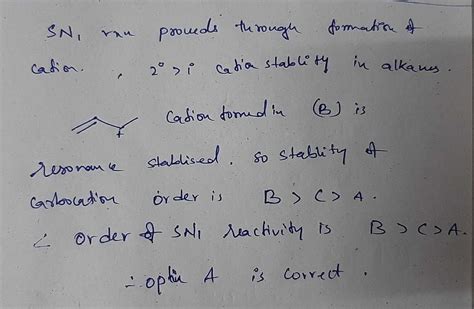 SN1 rxn proceeds through formation of
cation. , 2° > 1° cation stablity in alkanes.
+ Cation formed in (B) is
resonance stablised. so stablity of
carbocation order is B > C > A.
∠ order of SN1 reactivity is B > C > A.
∴ optin A is correct.